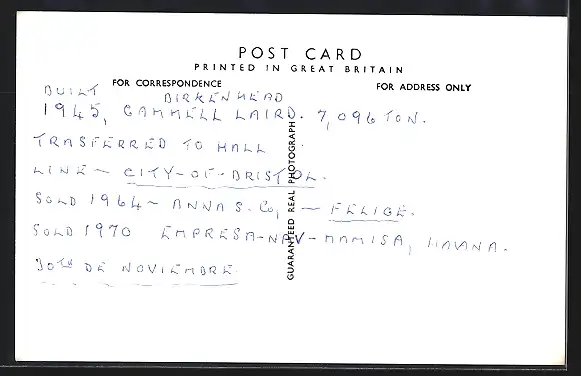 POST CARD
PRINTED IN GREAT BRITAIN
FOR CORRESPONDENCE
FOR ADDRESS ONLY
BUILT BIRKENHEAD
1945, CAMMELL LAIRD. 7,096 TON.
TRASFERRED TO HALL
LINE ~ CITY-OF-BRISTOL.
SOLD 1964 ~ ANNA S. Co, ~ FELIGE.
SOLD 1970 EMPRESA-NAV-MAMISA, HAVANA.
30TH DE NOVIEMBRE.
GUARANTEED REAL PHOTOGRAPH